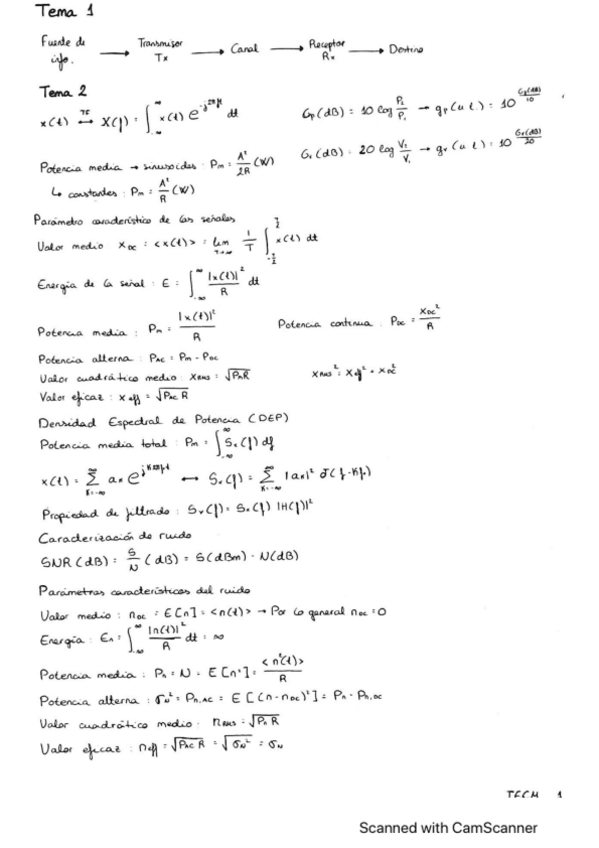 Tema 1
Fuente de info. → Transmisor Tx → Canal → Receptor Rx → Destino
Tema 2
x(t) ↔TF X(f) = ∫_{-∞}^{∞} x(t) e^{-j2πft} dt
Gp(dB) = 10 log P2/P1 → gp(u.l.) = 10^{Gp(dB)/10}
Gv(dB) = 20 log V2/V1 → gv(u.l.) = 10^{Gv(dB)/20}
Potencia media → sinusoides: Pm = A²/2R (W)
↳ constantes: Pm = A²/R (W)
Parámetro característico de las señales
Valor medio XDC = <x(t)> = lim_{T→∞} 1/T ∫_{-T/2}^{T/2} x(t) dt
Energía de la señal: E = ∫_{-∞}^{∞} |x(t)|²/R dt
Potencia media: Pm = |x(t)|²/R
Potencia continua: PDC = XDC²/R
Potencia alterna: PAC = Pm - PDC
Valor cuadrático medio: XRMS = √PmR
XRMS² = Xeff² + XDC²
Valor eficaz: Xeff = √PAC R
Densidad Espectral de Potencia (DEP)
Potencia media total: Pm = ∫_{-∞}^{∞} Sx(f) df
x(t) = Σ_{K=-∞}^{∞} aK e^{jK2πf₀t} ↔ Sx(f) = Σ_{K=-∞}^{∞} |aK|² δ(f-Kf₀)
Propiedad de filtrado: Sy(f) = Sx(f) |H(f)|²
Caracterización de ruido
SNR(dB) = S/N (dB) = S(dBm) - N(dB)
Parámetros característicos del ruido
Valor medio: nDC = E[n] = <n(t)> → Por lo general nDC = 0
Energía: En = ∫_{-∞}^{∞} |n(t)|²/R dt = ∞
Potencia media: Pn = N = E[n²] = <n²(t)>/R
Potencia alterna: σN² = Pn,AC = E[(n-nDC)²] = Pn - Pn,DC
Valor cuadrático medio: nRMS = √Pn R
Valor eficaz: neff = √PAC R = √σN² = σN
TECM 1
Scanned with CamScanner